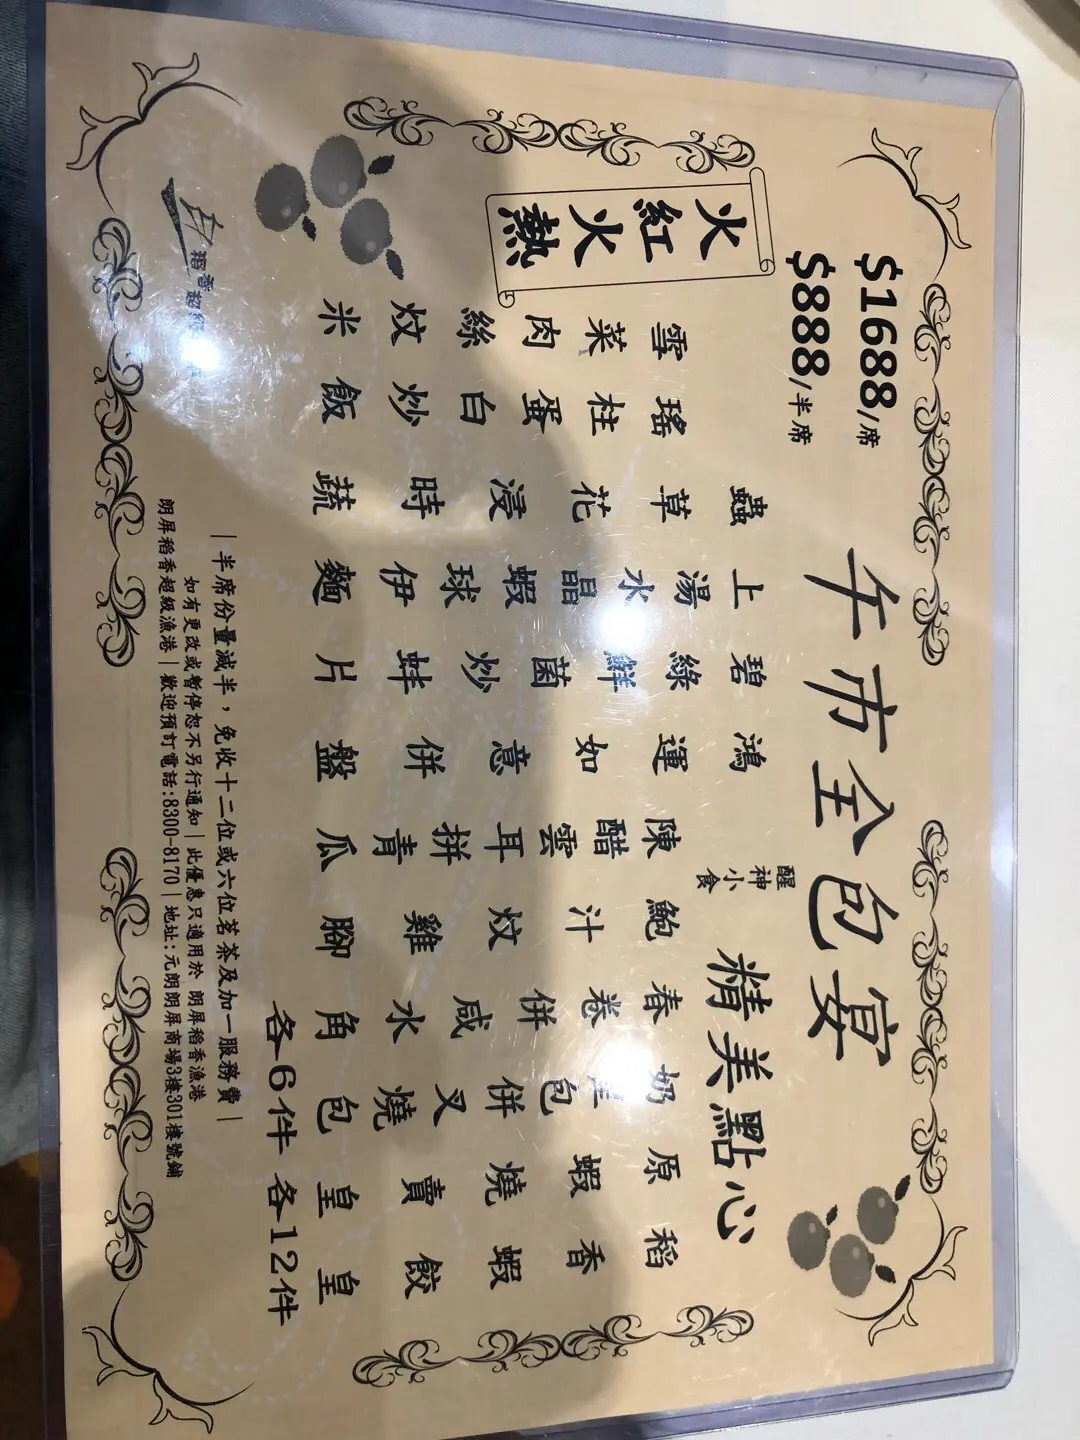 $1688/席
$888/半席
午市全包宴
火紅火熱
醒神小食
精美點心
稻香蝦餃皇
原蝦燒賣皇
各12件
奶包併叉燒包
春卷併咸水角
各6件
鮑汁炆雞腳
陳醋雲耳拼青瓜
鴻運如意併盤
碧綠鮮菌炒蚌片
上湯水晶蝦球伊麵
蟲草花浸時蔬
瑤柱蛋白炒飯
雪菜肉絲炆米
|半席份量減半，免收十二位或六位茗茶及加一服務費|
如有更改或暫停恕不另行通知|此優惠只適用於 朗屏稻香漁港
朗屏稻香超級漁港|歡迎預訂電話:8300-8170|地址:元朗朗屏商場3樓301樓號鋪
稻香超